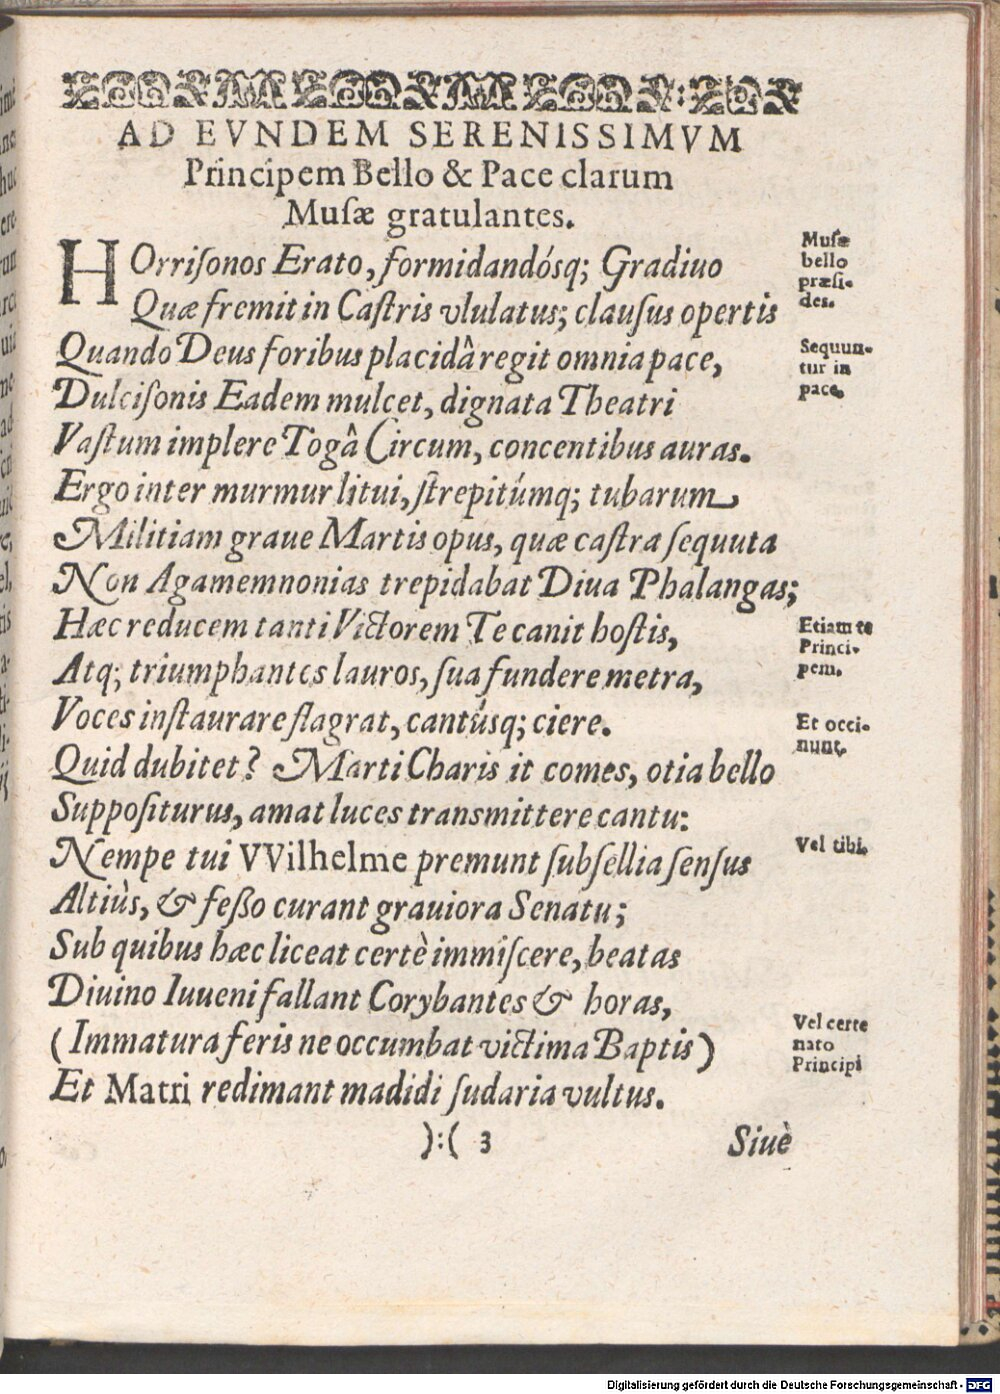 AD EVNDEM SERENISSIMVM
Principem Bello & Pace clarum
Muſæ gratulantes.
HOrriſonos Erato, formidandósq; Gradiuo
Quæ fremit in Caſtris vlulatus; clauſus opertis
Quando Deus foribus placidâ regit omnia pace,
Dulciſonis Eadem mulcet, dignata Theatri
Vaſtum implere Togâ Circum, concentibus auras.
Ergo inter murmur litui, ſtrepitúmq; tubarum
Militiam graue Martis opus, quæ caſtra ſequuta
Non Agamemnonias trepidabat Diua Phalangas;
Hæc reducem tanti Victorem Te canit hoſtis,
Atq; triumphantes lauros, ſua fundere metra,
Voces inſtaurare flagrat, cantúsq; ciere.
Quid dubitet? Marti Charis it comes, otia bello
Suppoſiturus, amat luces transmittere cantu:
Nempe tui VVilhelme premunt ſubſellia ſenſus
Altiùs, & feßo curant grauiora Senatu;
Sub quibus hæc liceat certè immiſcere, beatas
Diuino Iuueni fallant Corybantes & horas,
(Immatura feris ne occumbat victima Baptis)
Et Matri redimant madidi ſudaria vultus.
):( 3
Siuè
Muſæ
bello
præſi-
des.
Sequun-
tur in
pace.
Etiam te
Princi-
pem.
Et occi-
nunt.
Vel tibi.
Vel certe
nato
Principi
Digitalisierung gefördert durch die Deutsche Forschungsgemeinschaft - DFG